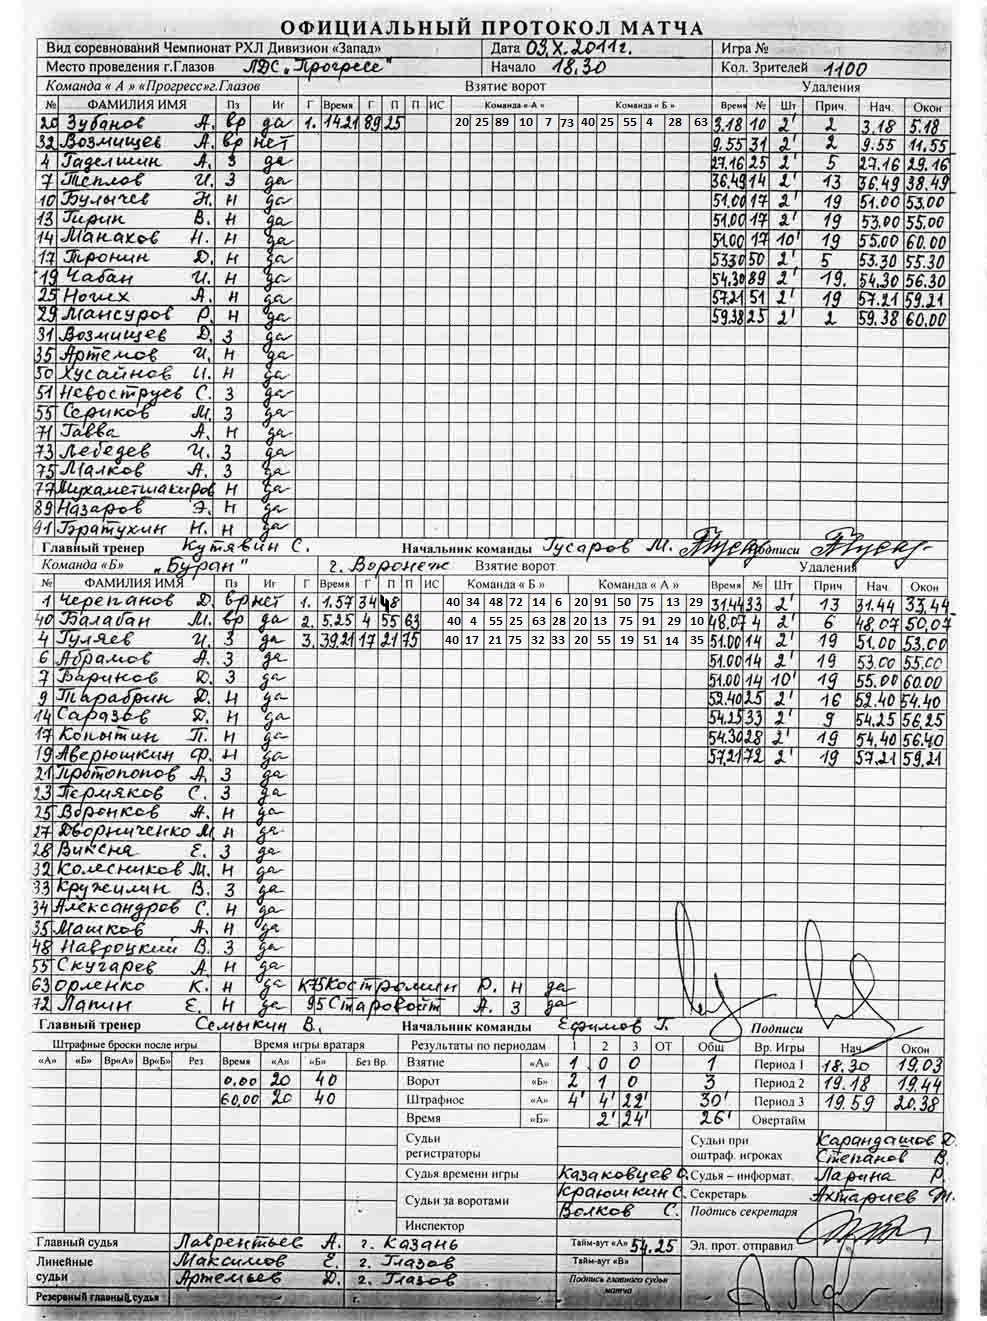 ОФИЦИАЛЬНЫЙ ПРОТОКОЛ МАТЧА
Вид соревнований Чемпионат РХЛ Дивизион «Запад» Дата 09.X.2011г. Игра №
Место проведения г.Глазов ЛДС „Прогресс" Начало 18.30 Кол. Зрителей 1100
Команда « А » «Прогресс»г.Глазов Взятие ворот Удаления
№ ФАМИЛИЯ ИМЯ Пз Иг Г Время Г П П ИС Команда «А» Команда « Б » Время № Шт Прич. Нач. Окон
20 Зубанов А. вр да 1. 14.21 89 25 20 25 89 10 7 73 40 25 55 4 28 63 3.18 10 2' 2 3.18 5.18
32 Возмищев А. вр нет 9.55 31 2' 2 9.55 11.55
4 Гаделшин А. З да 27.16 25 2' 5 27.16 29.16
7 Теплов И. З да 36.49 14 2' 13 36.49 38.49
10 Булычев Н. Н да 51.00 17 2' 19 51.00 53.00
13 Гирин В. Н да 51.00 17 2' 19 53.00 55.00
14 Манахов Н. Н да 51.00 17 10' 19 55.00 60.00
17 Тронин Д. Н да 53.30 50 2' 5 53.30 55.30
19 Чабан И. Н да 54.30 89 2' 19. 54.30 56.30
25 Ногих А. Н да 57.21 51 2' 19 57.21 59.21
29 Мансуров Р. Н да 59.38 25 2' 2 59.38 60.00
31 Возмищев Д. З да
35 Артемов И. Н да
50 Хусаинов И. Н да
51 Невоструев С. З да
55 Сериков М. З да
71 Гавва А. Н да
73 Лебедев И. З да
75 Малков А. З да
77 Мухаметшакиров Н да
89 Назаров Э. Н да
91 Братухин Н. Н да
Главный тренер Кутявин С. Начальник команды Гусаров М. Подписи
Команда «Б» „Буран" г. Воронеж Взятие ворот Удаления
№ ФАМИЛИЯ ИМЯ Пз Иг Г Время Г П П ИС Команда « Б » Команда « А » Время № Шт Прич Нач. Окон
1 Черепанов Д. вр нет 1. 1.57 34 48 40 34 48 72 14 6 20 91 50 75 13 29 31.44 33 2' 13 31.44 33.44
40 Балабан М. вр да 2. 5.25 4 55 63 40 4 55 25 63 28 20 13 75 91 29 10 48.07 4 2' 6 48.07 50.07
4 Гуляев И. З да 3. 39.21 17 21 75 40 17 21 75 32 33 20 55 19 51 14 35 51.00 14 2' 19 51.00 53.00
6 Абрамов А. З да 51.00 14 2' 19 53.00 55.00
7 Баринов Д. З да 51.00 14 10' 19 55.00 60.00
9 Тарабрин Д. Н да 52.40 25 2' 16 52.40 54.40
14 Саразов Д. Н да 54.25 33 2' 9 54.25 56.25
17 Копытин П. Н да 54.30 28 2' 19 54.40 56.40
19 Аверюшкин Ф. Н да 57.21 72 2' 19 57.21 59.21
21 Протопопов А. З да
23 Пермяков С. З да
25 Воронков А. Н да
27 Дворниченко М. Н да
28 Виксна Е. З да
32 Колесников М. Н да
33 Кружилин В. З да
34 Александров С. Н да
35 Машков А. Н да
48 Навроцкий В. З да
55 Скугарев А. Н да
63 Орленко К. Н да К75 Костромин Р. Н да
72 Лапин Е. Н да 95 Старовойт А. З да
Главный тренер Семыкин В. Начальник команды Ефимов Г. Подписи
Штрафные броски после игры Время игры вратаря Результаты по периодам 1 2 3 ОТ Общ Вр. Игры Нач Окон
«А» «Б» Вр«А» Вр«Б» Рез Время «А» «Б» Без Вр. Взятие «А» 1 0 0 1 Период 1 18.30 19.03
0.00 20 40 Ворот «Б» 2 1 0 3 Период 2 19.18 19.44
60.00 20 40 Штрафное «А» 4' 4' 22' 30' Период 3 19.59 20.38
Время «Б» 2' 24' 26' Овертайм
Судьи регистраторы Судьи при оштраф. игроках Карандашов Д. Степанов В.
Судья времени игры Казаковцев О. Судья – информат. Ларина Р.
Судьи за воротами Краюшкин С. Волков С. Секретарь Ахтариев М.
Подпись секретаря
Инспектор
Главный судья Лаврентьев А. г. Казань Тайм-аут «А» 54.25 Эл. прот. отправил
Линейные судьи Максимов Е. г. Глазов Тайм-аут «В»
Артемьев Д. г. Глазов Подпись главного судьи матча
Резервный главный судья г.